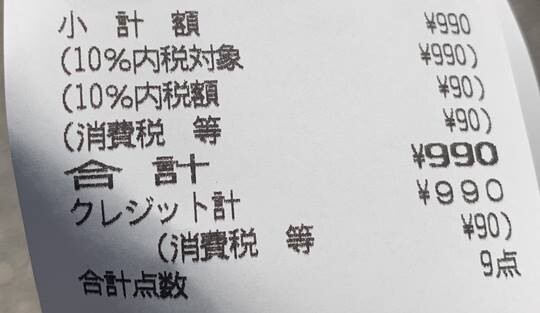 小 計 額 ¥990
(10%内税対象 ¥990)
(10%内税額 ¥90)
(消費税 等 ¥90)
合 計 ¥990
クレジット計 ¥990
(消費税 等 ¥90)
合計点数 9点